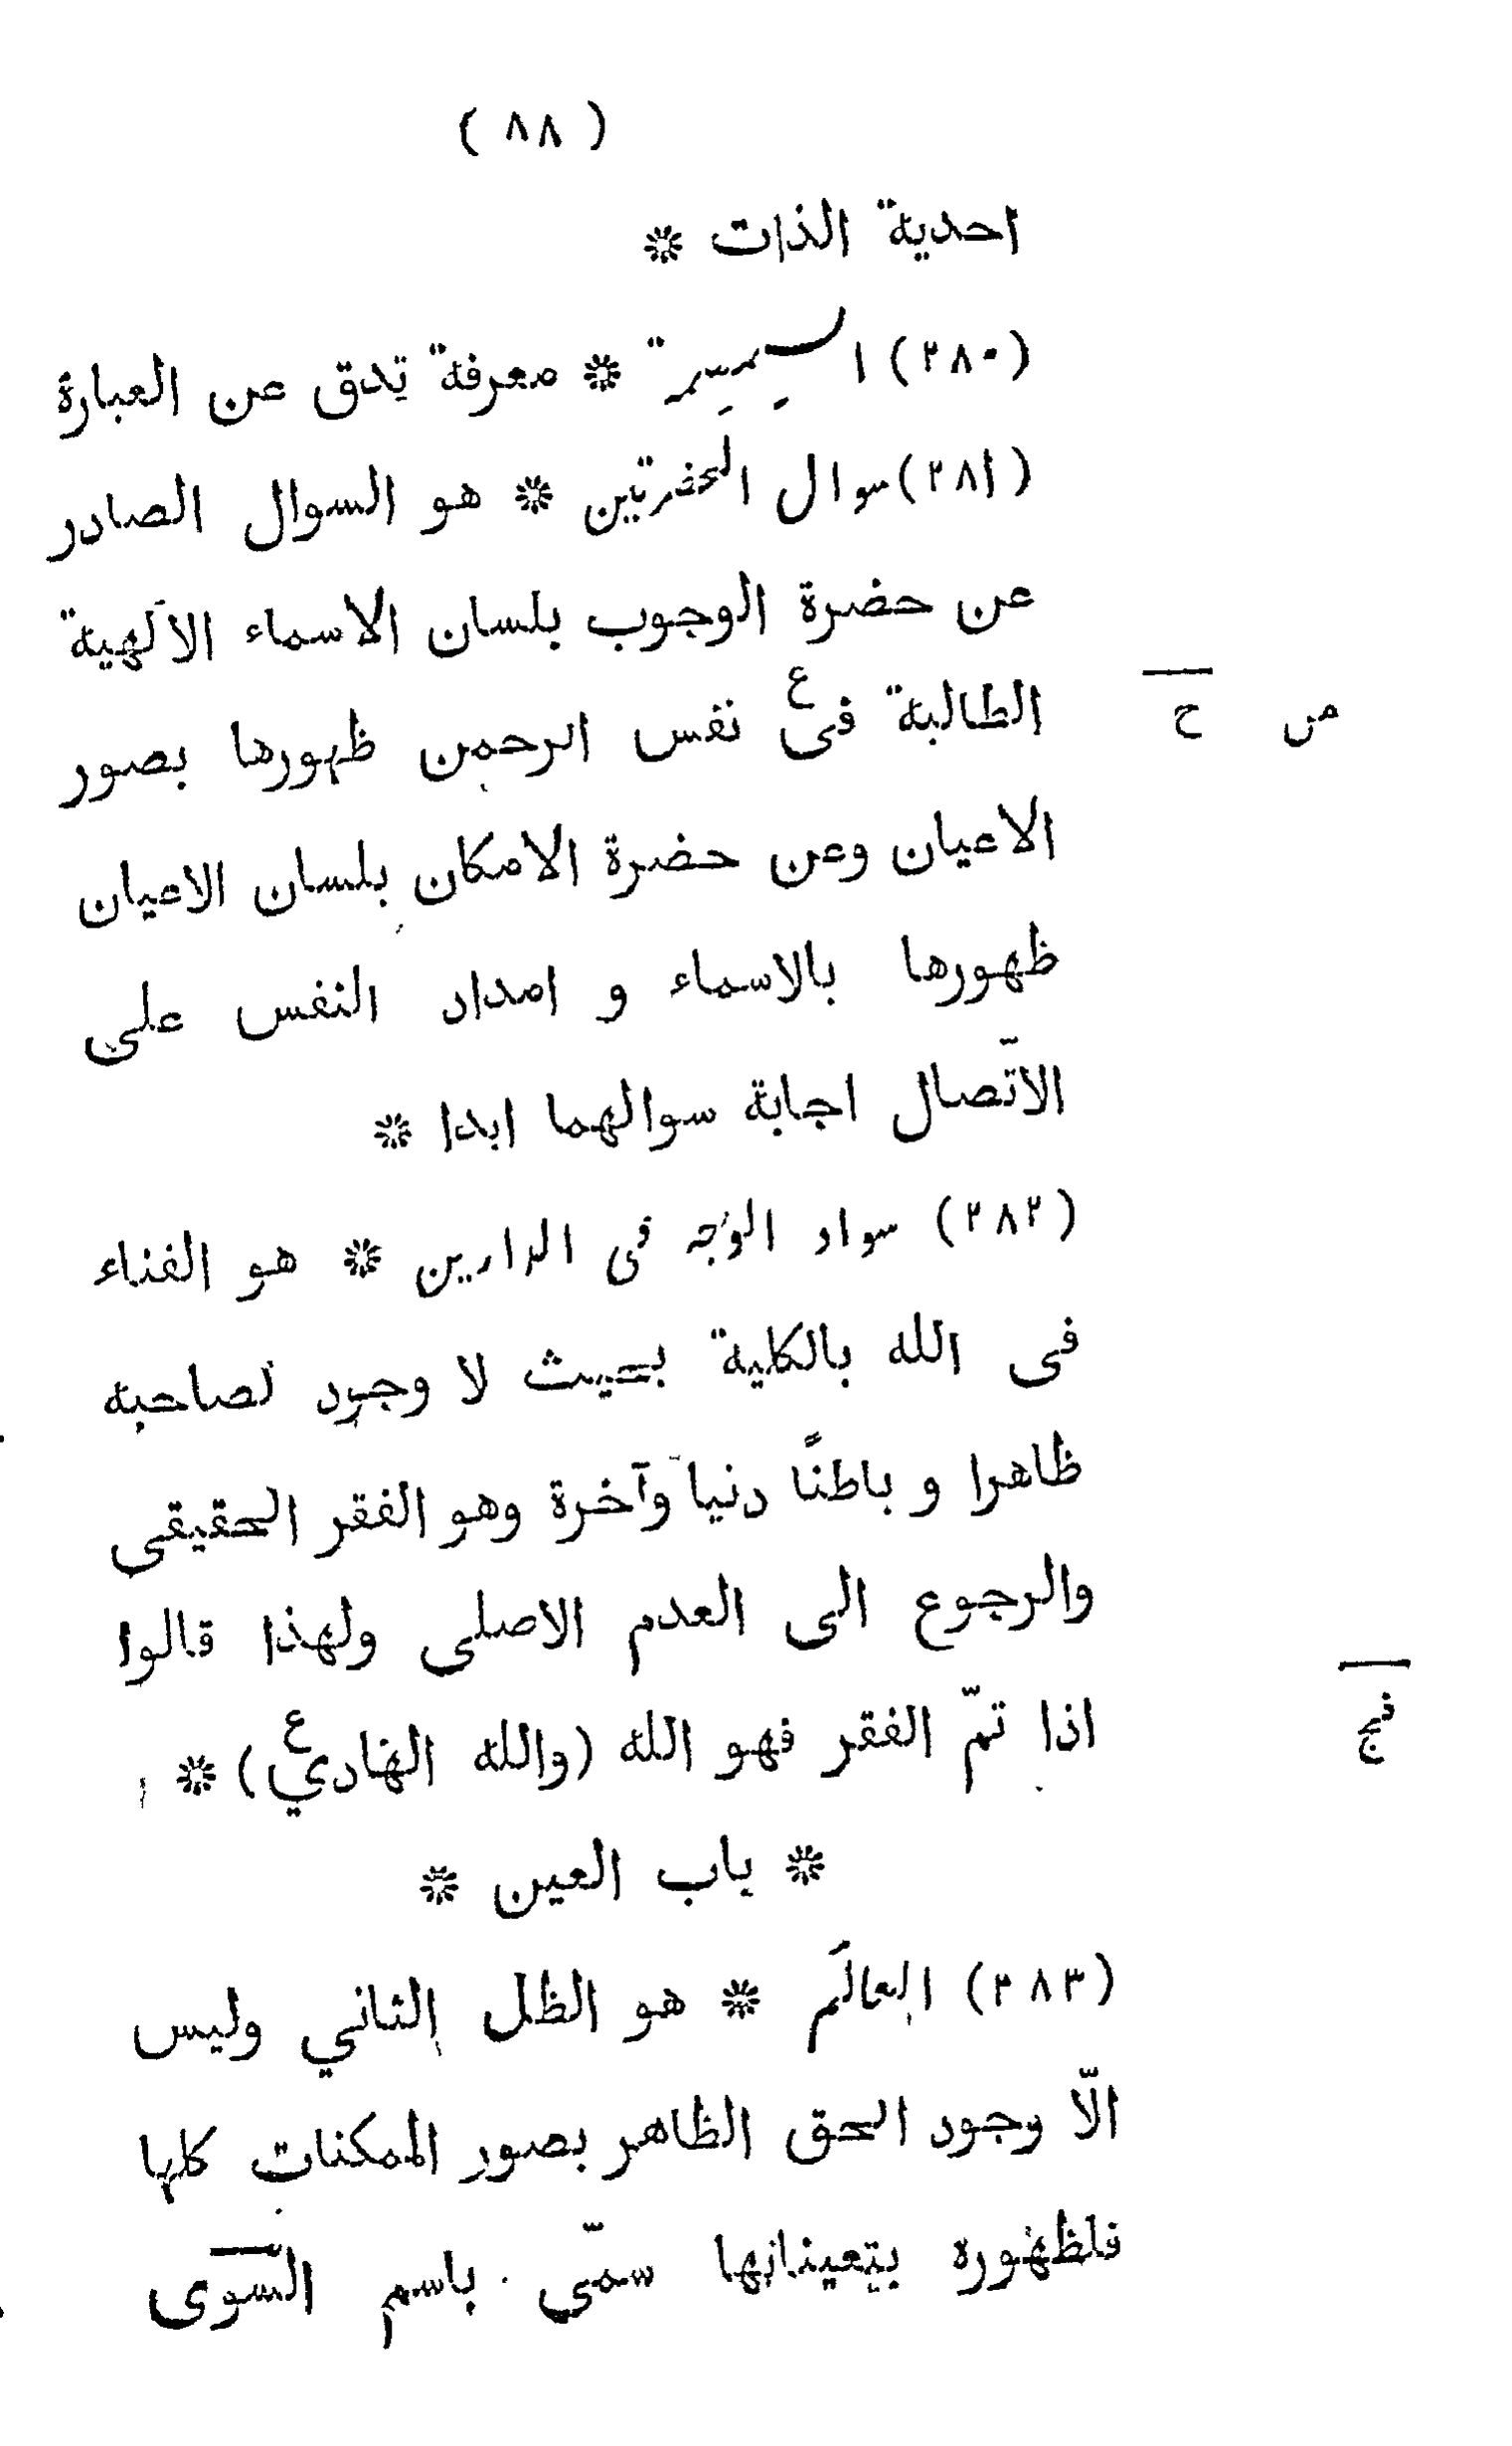 ( ٨٨ )
احدية الذات *
(٢٨٠) السمسمة * معرفة تدق عن العبارة
(٢٨١) سوال الحضرتين * هو السوال الصادر
عن حضرة الوجوب بلسان الاسماء الالهية
الطالبة فى ع نفس الرحمن ظهورها بصور
من ح
الاعيان وعن حضرة الامكان بلسان الاعيان
ظهورها بالاسماء و امداد النفس على
الاتّصال اجابة سوالهما ابدا *
(٢٨٢) سواد الوجه فى الدارين * هو الفناء
فى الله بالكلية بحيث لا وجود لصاحبه
ظاهرا و باطنًا دنيا وآخرة وهو الفقر الحقيقى
والرجوع الى العدم الاصلى ولهذا قالوا
اذا تمّ الفقر فهو الله (والله الهادي ع) *
فج
* باب العين *
(٢٨٣) العالَم * هو الظل الثاني وليس
الّا وجود الحق الظاهر بصور الممكنات كلها
فلظهوره بتعيناتها سمّى باسم السّوى